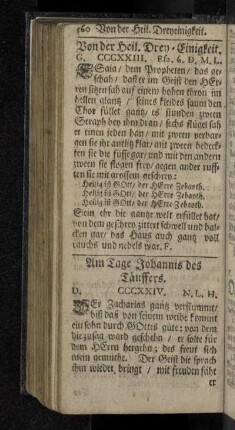 160 Von der Heil. Dreyeinigkeit.
Von der Heil. Drey-Einigkeit.
G. CCCXXIII. Esa. 6. D. M. L.
ESaia / dem Propheten / das ge-
schah / daß er im Geist den HEr-
ren sitzen sah auf einem hohen thron im
hellen glantz / seines kleides saum den
Chor füllet gantz / es stunden zween
Seraph bey ihm dran / sechs flügel sah
er einen jeden han / mit zween verbar-
gen sie ihr antlitz klar / mit zween bedeck-
ten sie die füsse gar / und mit den andern
zween sie flogen frey / gegen ander ruff-
ten sie mit grossem geschrey:
Heilig ist GOtt / der HErre Zebaoth.
Heilig ist GOtt / der HErre Zebaoth.
Heilig ist GOtt / der HErre Zebaoth.
Sein ehr die gantze welt erfüllet hat /
von dem geschrey zittert schwell und bal-
cken gar / das Haus auch gantz voll
rauchs und nebels war. F.
Am Tage Johannis des
Täuffers.
D. CCCXXIV. N. L. H.
WEr Zacharias gantz verstummt /
biß daß von seinem weibe kommt
ein sohn durch GOttes güte: von dem
hiezusag ward geschehn / er solte für
dem HErrn hergehn; des freut sich
sein gemüthe. Der Geist die sprach
ihm wieder bringt / mit freuden fäht
er